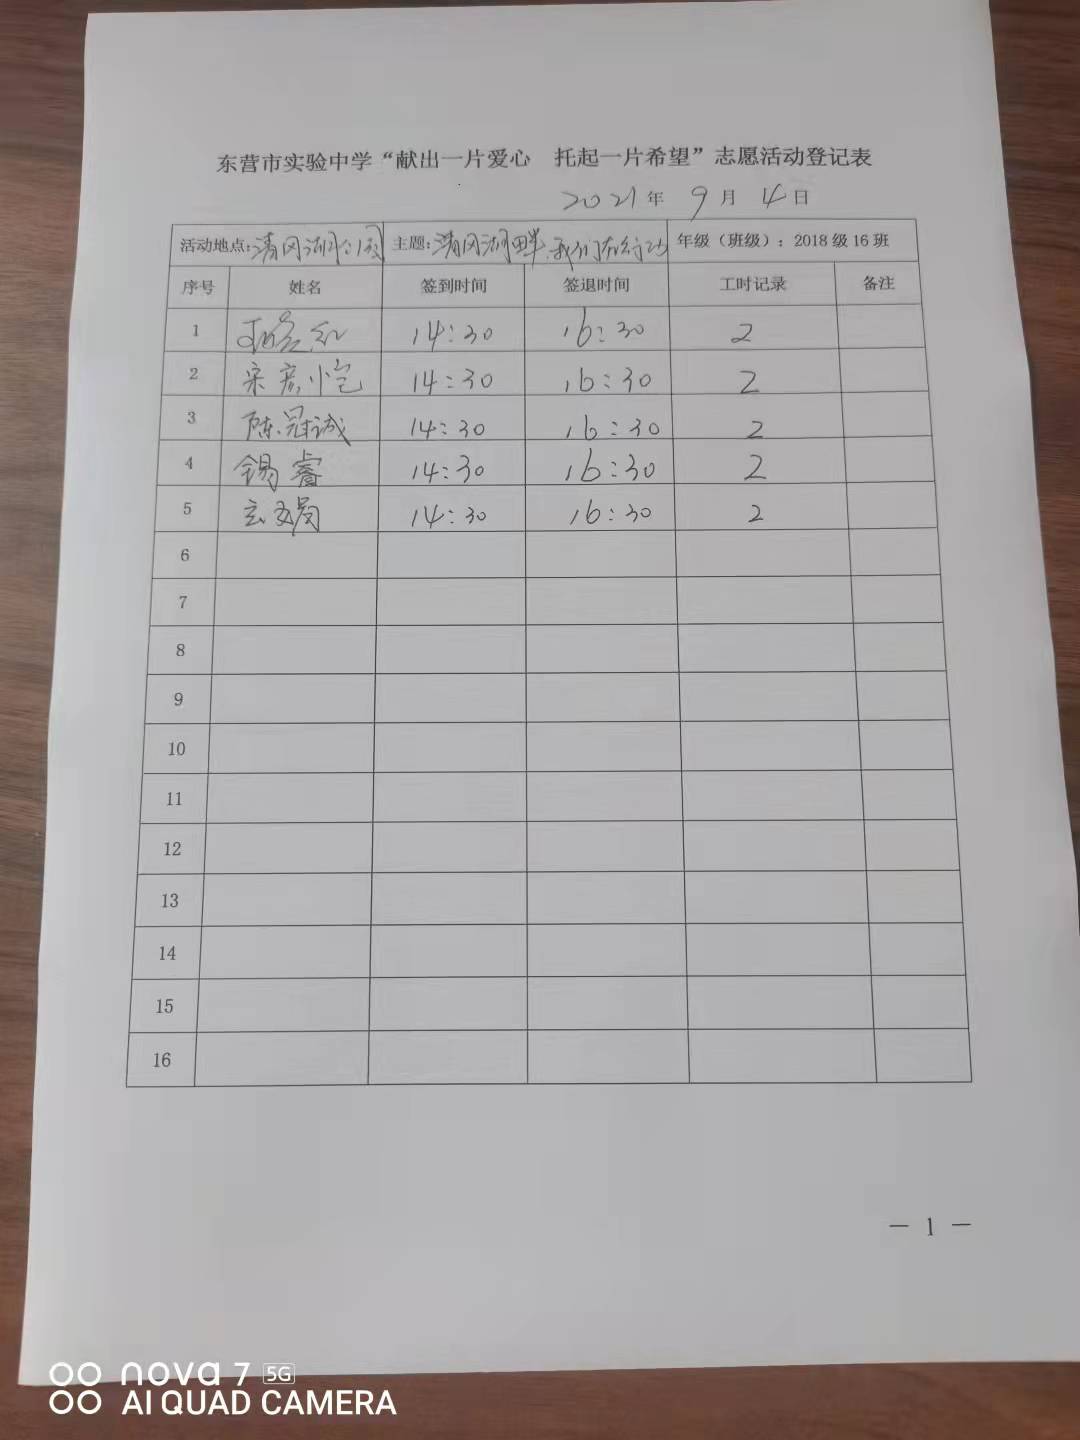 东营市实验中学“献出一片爱心 托起一片希望”志愿活动登记表
2021年 9月 4日
活动地点:清风湖公园 主题:清风湖畔,我们在行动 年级（班级）: 2018级16班
序号 姓名 签到时间 签退时间 工时记录 备注
1 14:30 16:30 2
2 宋彦恺 14:30 16:30 2
3 陈冠诚 14:30 16:30 2
4 锡睿 14:30 16:30 2
5 14:30 16:30 2
6
7
8
9
10
11
12
13
14
15
16
— 1 —
nova 7 5G
AI QUAD CAMERA